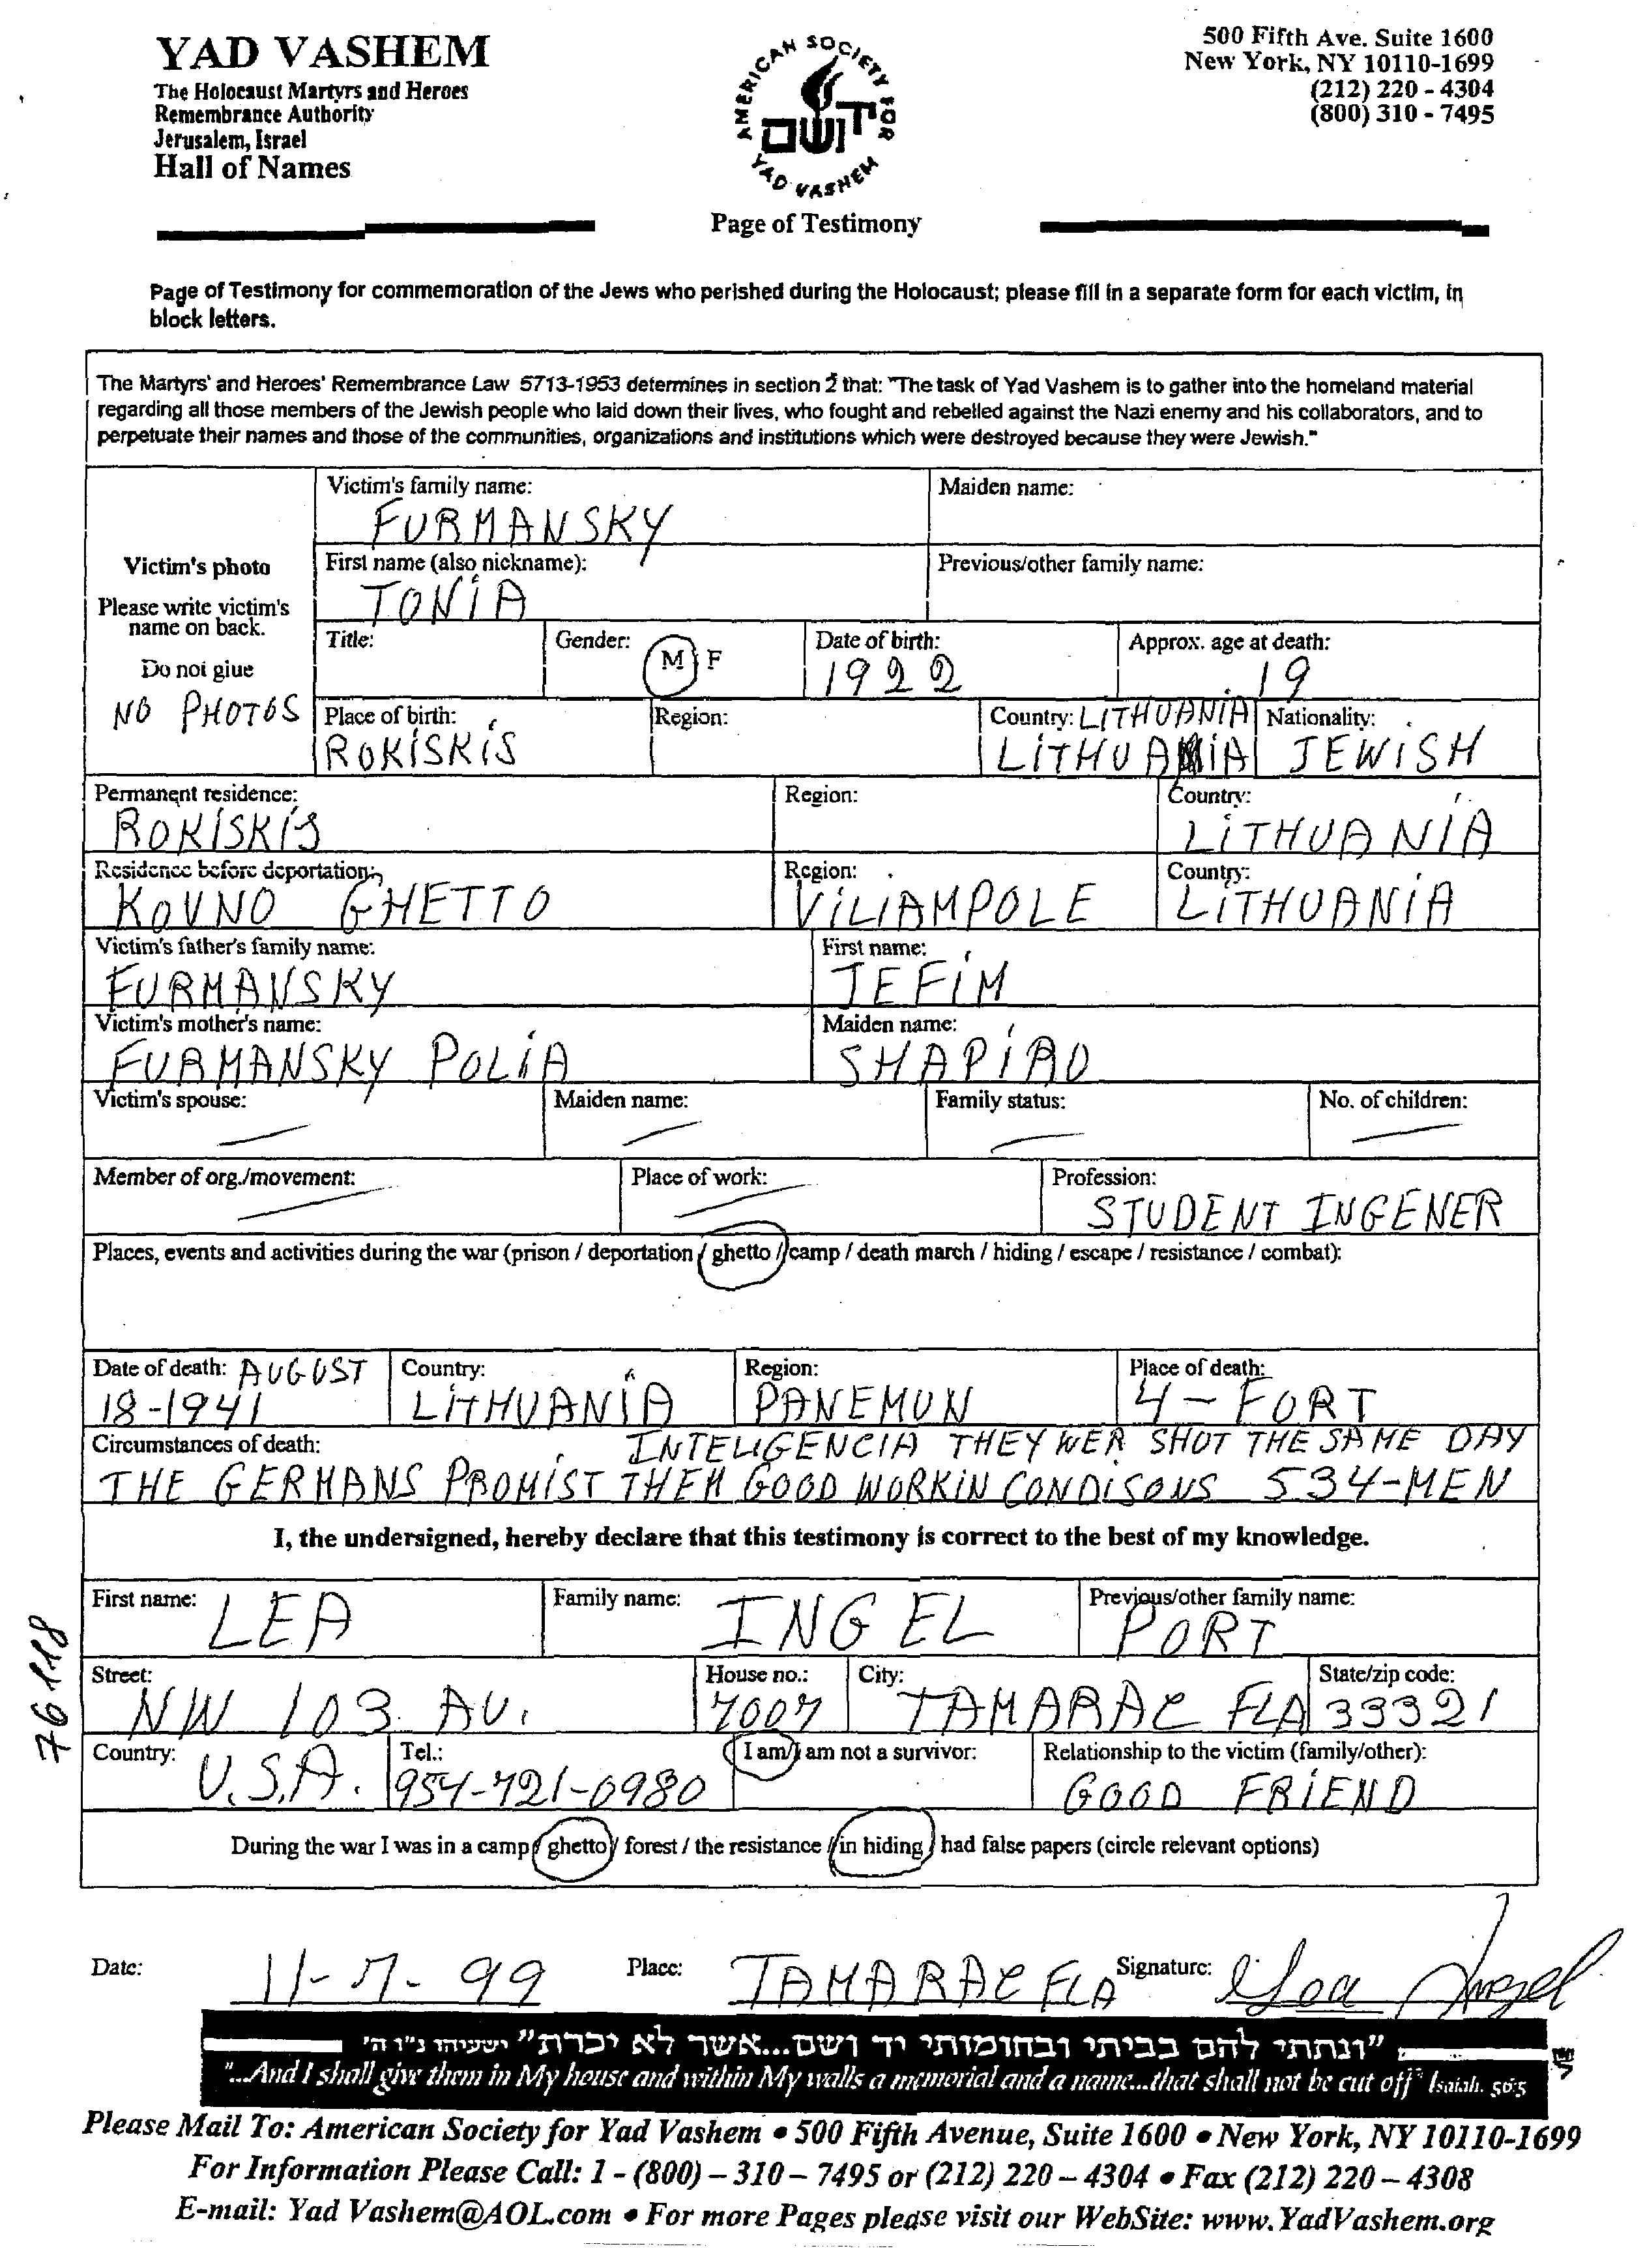 YAD VASHEM
The Holocaust Martyrs and Heroes
Remembrance Authority
Jerusalem, Israel
Hall of Names
AMERICAN SOCIETY FOR
יד ושם
YAD VASHEM
Page of Testimony
500 Fifth Ave. Suite 1600
New York, NY 10110-1699
(212) 220 - 4304
(800) 310 - 7495
Page of Testimony for commemoration of the Jews who perished during the Holocaust; please fill in a separate form for each victim, in
block letters.
The Martyrs' and Heroes' Remembrance Law 5713-1953 determines in section 2 that: "The task of Yad Vashem is to gather into the homeland material
regarding all those members of the Jewish people who laid down their lives, who fought and rebelled against the Nazi enemy and his collaborators, and to
perpetuate their names and those of the communities, organizations and institutions which were destroyed because they were Jewish."
Victim's photo
Please write victim's
name on back.
Do not glue
NO PHOTOS
Victim's family name: Maiden name:
FURMANSKY
First name (also nickname): Previous/other family name:
TONIA
Title: Gender: M F Date of birth: Approx. age at death:
1922 19
Place of birth: Region: Country: LITHUANIA Nationality:
ROKISKIS LITHUANIA JEWISH
Permanent residence: Region: Country:
ROKISKIS LITHUANIA
Residence before deportation: Region: Country:
KOVNO GHETTO VILIAMPOLE LITHUANIA
Victim's father's family name: First name:
FURMANSKY JEFIM
Victim's mother's name: Maiden name:
FURMANSKY POLIA SHAPIRO
Victim's spouse: Maiden name: Family status: No. of children:
Member of org./movement: Place of work: Profession:
STUDENT INGENER
Places, events and activities during the war (prison / deportation / ghetto / camp / death march / hiding / escape / resistance / combat):
Date of death: AUGUST Country: Region: Place of death:
18-1941 LITHUANIA PANEMUN 4-FORT
Circumstances of death: INTELIGENCIA THEY WER SHOT THE SAME DAY
THE GERMANS PROMIST THEM GOOD WORKIN CONDISONS 534-MEN
I, the undersigned, hereby declare that this testimony is correct to the best of my knowledge.
First name: LEA Family name: INGEL Previous/other family name:
PORT
Street: House no.: City: State/zip code:
NW 103 AV. 7007 TAMARAC FLA 33321
Country: U.S.A. Tel.: I am/I am not a survivor: Relationship to the victim (family/other):
954-721-0980 GOOD FRIEND
During the war I was in a camp / ghetto / forest / the resistance / in hiding / had false papers (circle relevant options)
76118
Date: 11-7-99 Place: TAMARAC FLA Signature: Lea Ingel
"ונתתי להם בביתי ובחומותי יד ושם...אשר לא יכרת" ישעיהו נ"ו ה'
"...And I shall give them in My house and within My walls a memorial and a name...that shall not be cut off" Isaiah. 56:5
Please Mail To: American Society for Yad Vashem • 500 Fifth Avenue, Suite 1600 • New York, NY 10110-1699
For Information Please Call: 1 - (800) – 310 – 7495 or (212) 220 – 4304 • Fax (212) 220 – 4308
E-mail: Yad Vashem@AOL.com • For more Pages please visit our WebSite: www.YadVashem.org